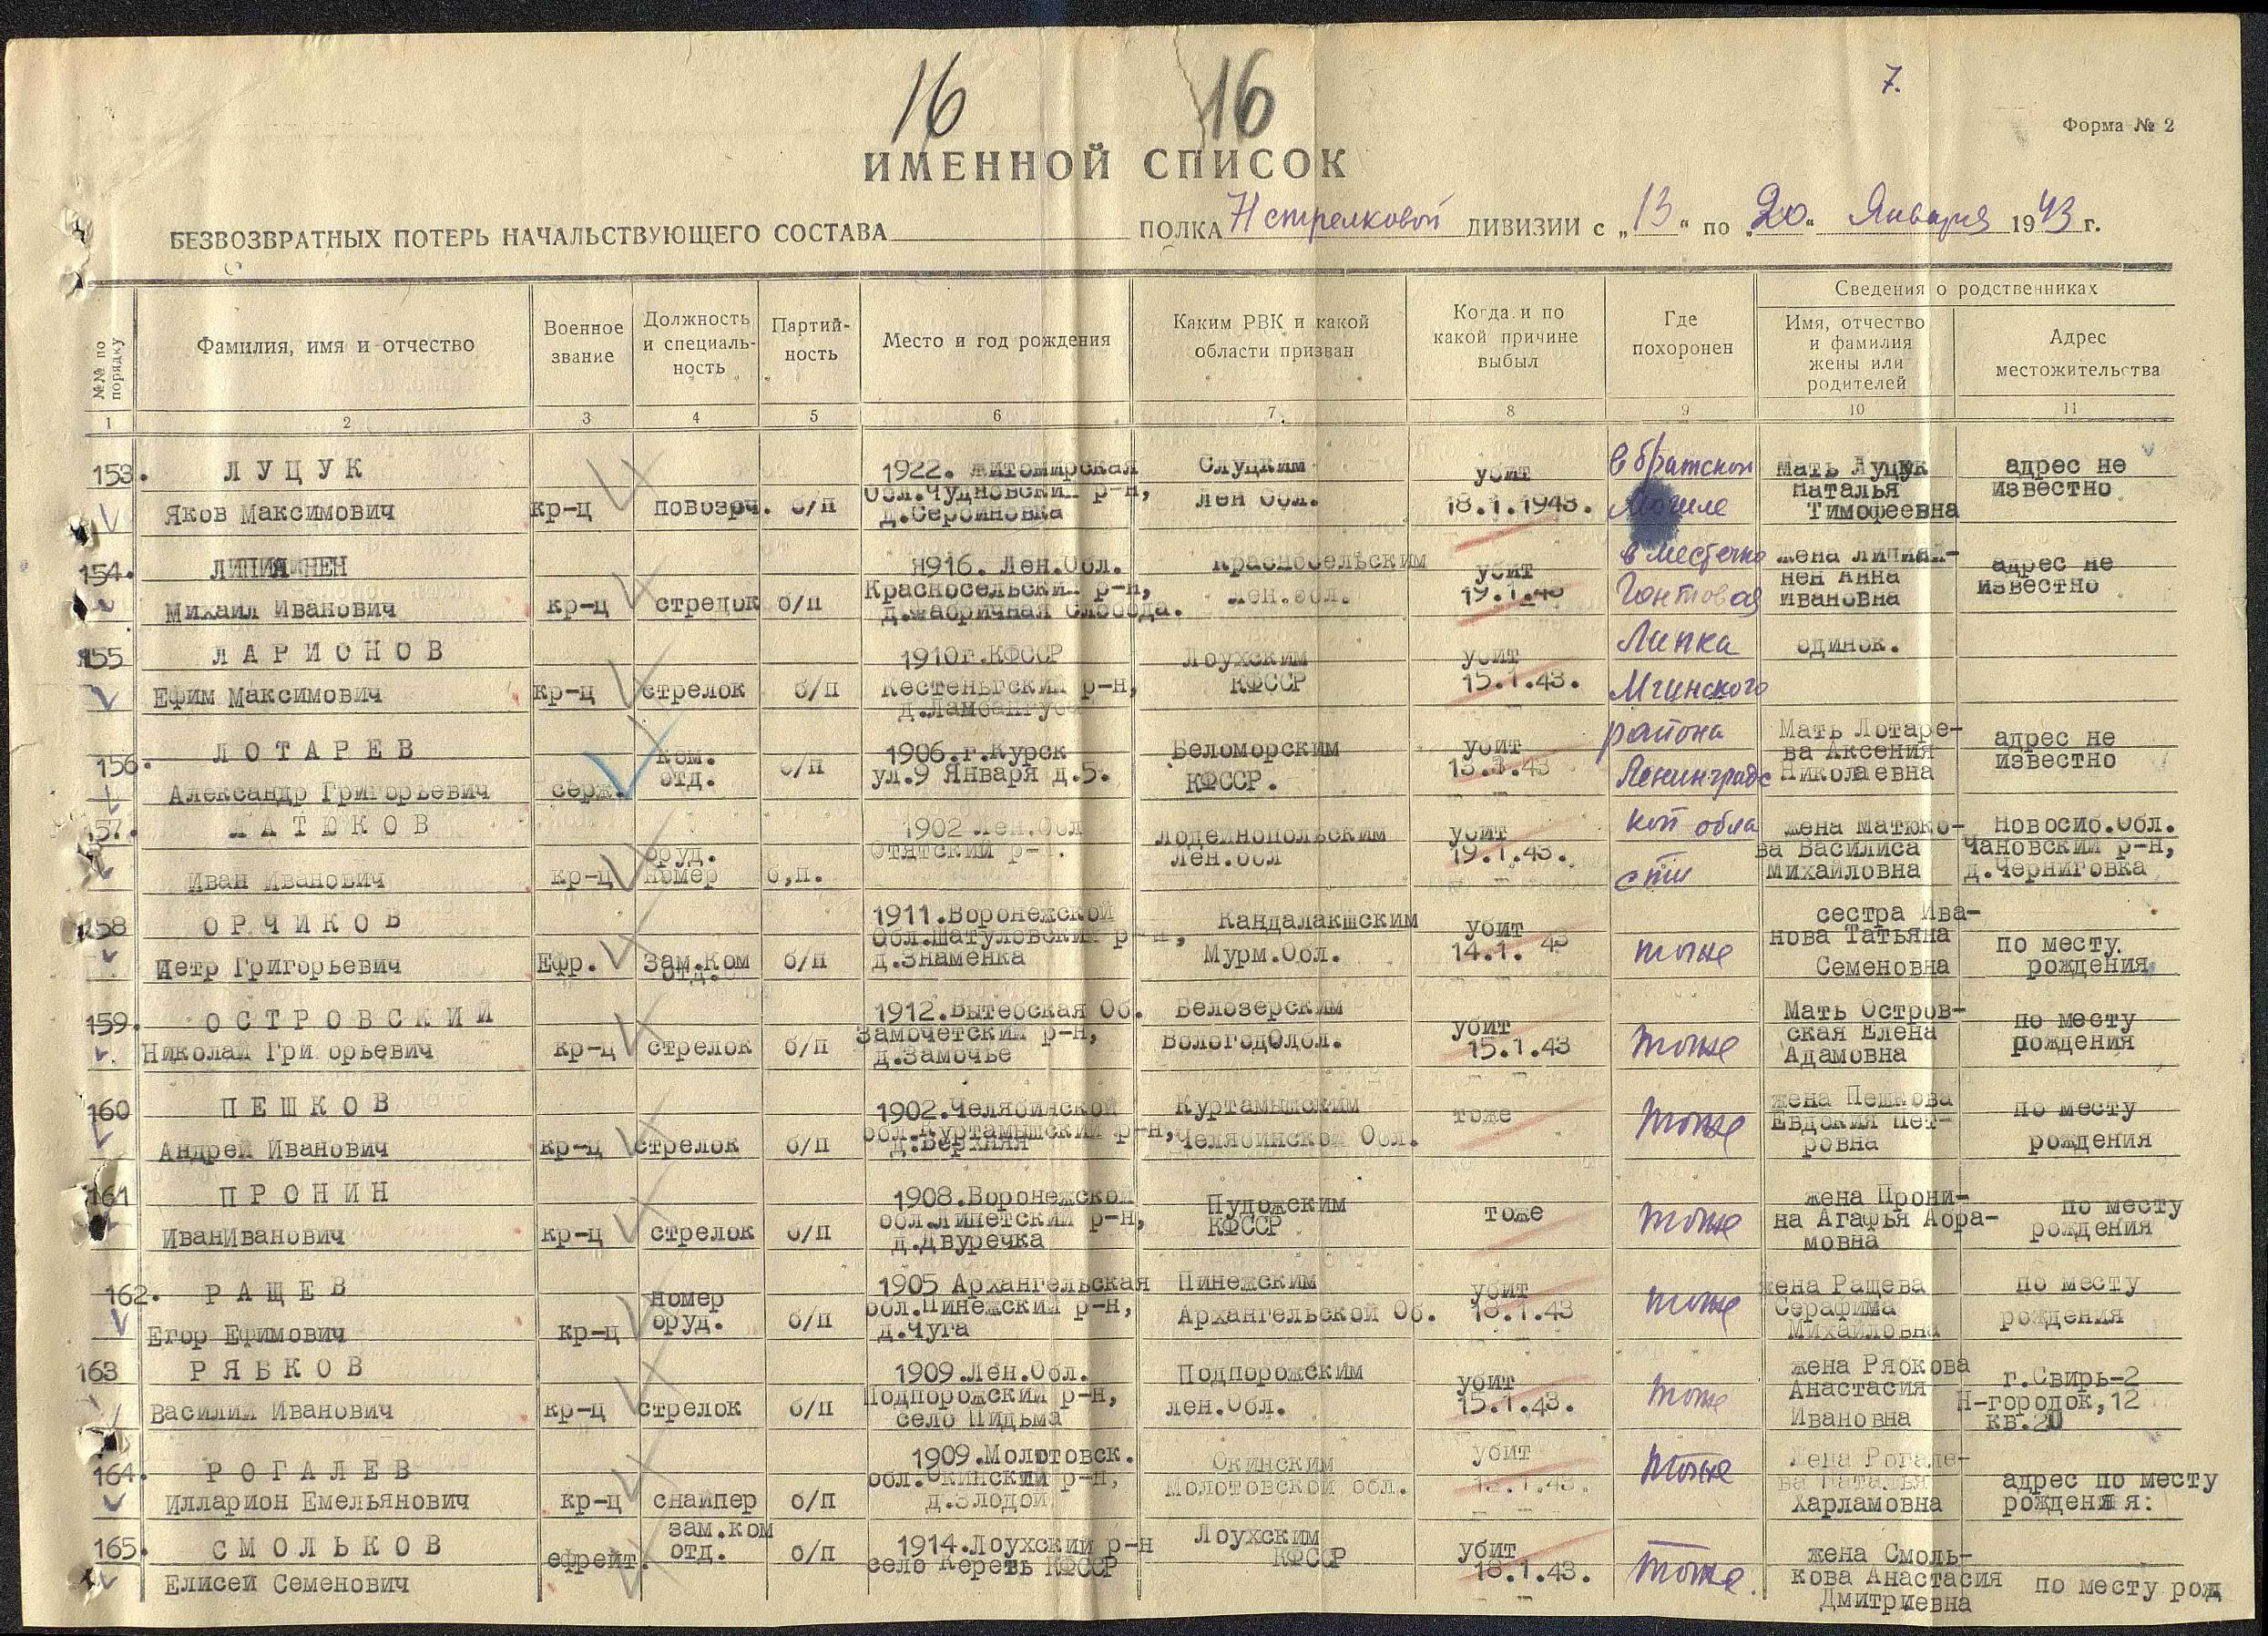 16
16
7.
Форма № 2
ИМЕННОЙ СПИСОК
БЕЗВОЗВРАТНЫХ ПОТЕРЬ НАЧАЛЬСТВУЮЩЕГО СОСТАВА ПОЛКА 71 стрелковой ДИВИЗИИ с „13“ по „20“ Января 1943 г.
№№ по порядку
Фамилия, имя и отчество
Военное звание
Должность и специаль-ность
Партий-ность
Место и год рождения
Каким РВК и какой области призван
Когда и по какой причине выбыл
Где похоронен
Сведения о родственниках
Имя, отчество и фамилия жены или родителей
Адрес местожительства
1 2 3 4 5 6 7 8 9 10 11
153. ЛУЦУК
Яков Максимович
кр-ц
повозоч.
б/п
1922. Житомирская
Обл.Чудновский р-н,
д.Сербиновка
Слуцким
Лен Обл.
убит
18.1.1943.
в братской
могиле
Мать Луцук
Наталья
Тимофеевна
адрес не
известно
154.
Михаил Иванович
кр-ц
стрелок
б/п
1916. Лен.Обл.
Красносельский р-н,
д.Фабричная Слобода.
Красносельским
Лен.обл.
убит
19.1.43
в местечко
Гонтовая
жена
нен Анна
Ивановна
адрес не
известно
155 ЛАРИОНОВ
Ефим Максимович
кр-ц
стрелок
б/п
1910г.КФССР
Кестеньгский р-н,
Лоухским
КФССР
убит
15.1.43.
Липка
Мгинского
одинок.
156. ЛОТАРЕВ
Александр Григорьевич
серж.
ком.
отд.
б/п
1906.г.Курск
ул.9 Января д.5.
Беломорским
КФССР.
убит
13.1.43
района
Ленинградс
Мать Лотаре-
ва Аксения
Николаевна
адрес не
известно
157.
Иван Иванович
кр-ц
оруд.
номер
б,п.
1902 Лен.Обл
Лодейнопольским
Лен.обл
убит
19.1.43.
кой обла
сти
жена Матюко-
ва Василиса
Михайловна
Новосиб.Обл.
Чановский р-н,
д.Черниговка
158 ОРЧИКОВ
Петр Григорьевич
Ефр.
Зам.Ком
отд.
б/п
1911.Воронежской
Обл.Шатуловский р-н,
д.Знаменка
Кандалакшским
Мурм.Обл.
убит
14.1. 43
тоже
сестра Ива-
нова Татьяна
Семеновна
по месту.
рождения
159. ОСТРОВСКИЙ
Николай Гри орьевич
кр-ц
стрелок
б/п
1912.Вытебская Об.
Замочетский р-н,
д.Замочье
Белозерским
ВологодОдол.
убит
15.1.43
тоже
Мать Остров-
ская Елена
Адамовна
по месту
рождения
160 ПЕШКОВ
Андрей Иванович
кр-ц
стрелок
б/п
1902.Челябинской
обл.Куртамышский р-н,
д.Верхняя
Куртамышским
Челябинской Обл.
тоже
тоже
жена Пешкова
Евдокия Пет-
ровна
по месту
рождения
161 ПРОНИН
ИванИванович
кр-ц
стрелок
б/п
1908.Воронежской
обл.Липетский р-н,
д.Двуречка
Пудожским
КФССР
тоже
тоже
жена Прони-
на Агафья Абра-
мовна
по месту
рождения
162. РАЩЕВ
Егор Ефимович
кр-ц
номер
оруд.
б/п
1905 Архангельская
обл.Пинежский р-н,
д.Чуга
Пинежским
Архангельской Об.
убит
18.1.43
тоже
жена Ращева
Серафима
Михайловна
по месту
рождения
163 РЯБКОВ
Василий Иванович
кр-ц
стрелок
б/п
1909.Лен.Обл.
Подпорожский р-н,
село Пидьма
Подпорожским
лен.Обл.
убит
15.1.43.
тоже
жена Рябкова
Анастасия
Ивановна
г.Свирь-2
Н-городок,12
кв.20
164. РОГАЛЕВ
Илларион Емельянович
кр-ц
снайпер
б/п
1909.Молотовск.
обл.Окинский р-н,
Окинским
Молотовской обл.
убит
тоже
жена Рогале-
ва Наталья
Харламовна
адрес по месту
рождения:
165. СМОЛЬКОВ
Елисей Семенович
ефрейт.
зам.ком
отд.
б/п
1914.Лоухский р-н
село Кереть КФССР
Лоухским
КФССР
убит
18.1.43.
тоже.
жена Смоль-
кова Анастасия
Дмитриевна
по месту рожд